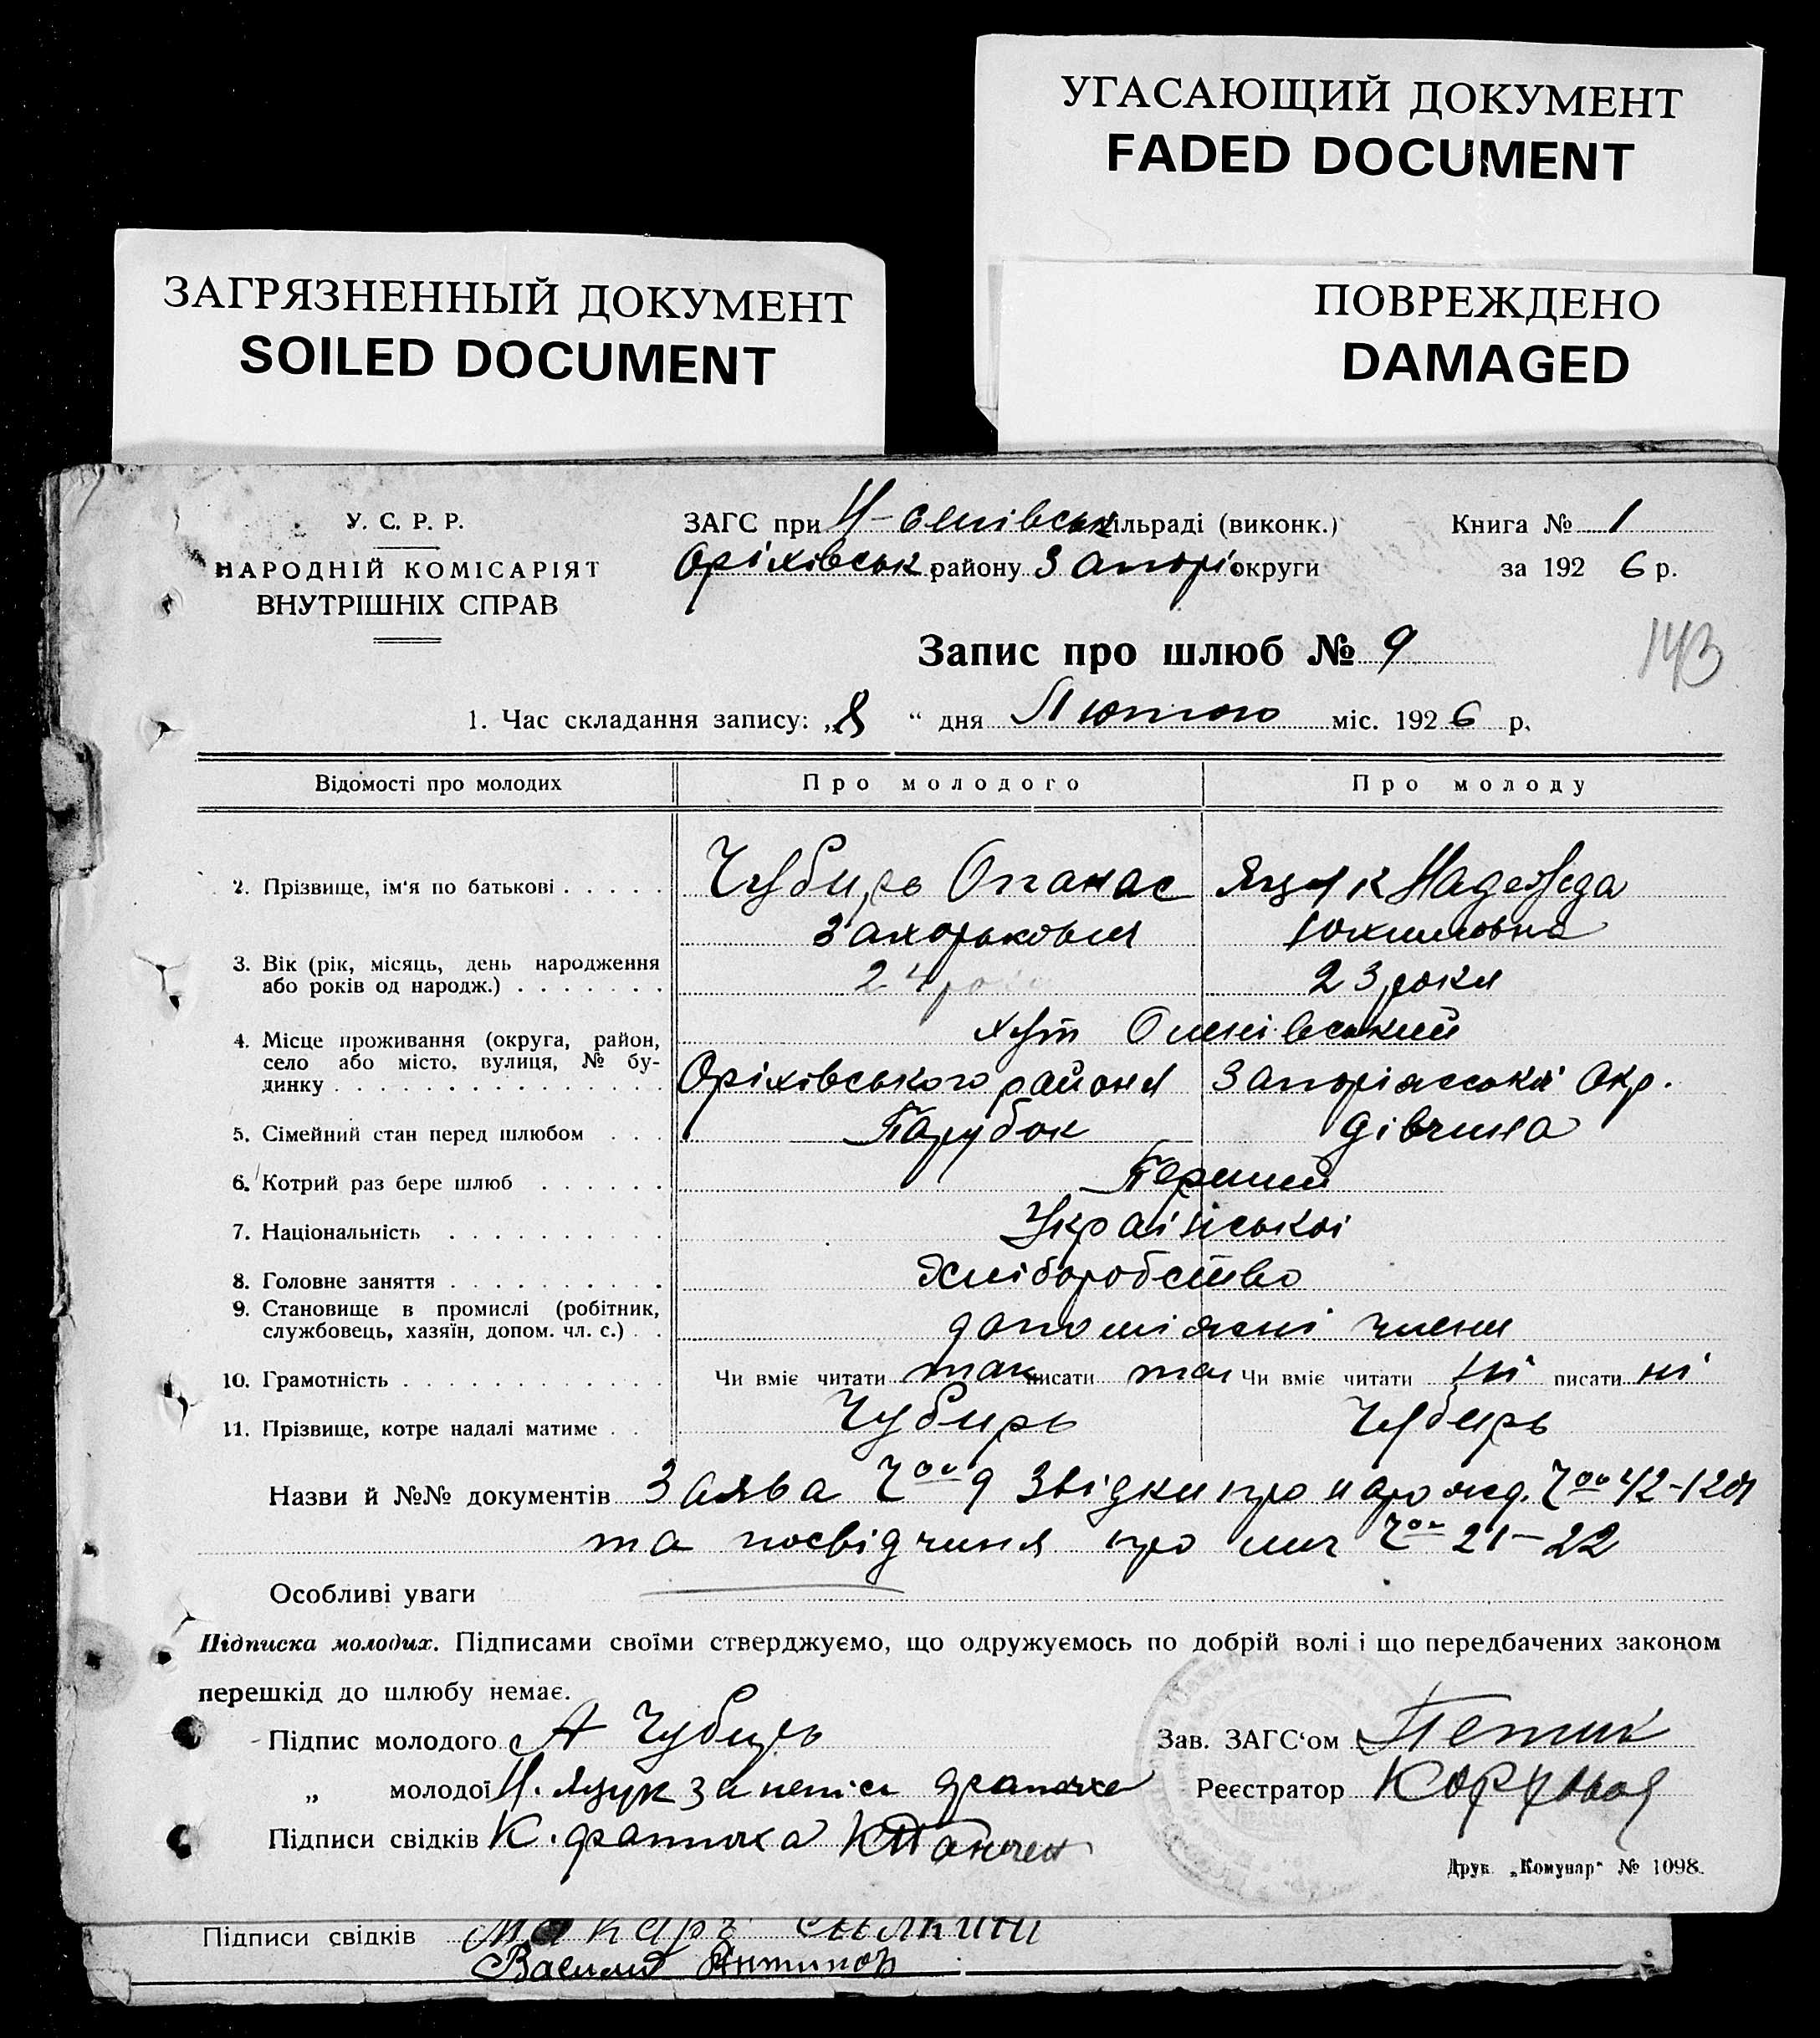 УГАСАЮЩИЙ ДОКУМЕНТ
FADED DOCUMENT
ЗАГРЯЗНЕННЫЙ ДОКУМЕНТ
SOILED DOCUMENT
ПОВРЕЖДЕНО
DAMAGED
У. С. Р. Р.
НАРОДНІЙ КОМІСАРІЯТ
ВНУТРІШНІХ СПРАВ
ЗАГС при ільраді (виконк.)
Оріхівськ. району Запорі округи
Книга № 1
за 192 6 р.
143
Запис про шлюб № 9
1. Час складання запису: „8 “ дня Лютого міс. 192 6 р.
Відомості про молодих Про молодого Про молоду
2. Прізвище, ім'я по батькові Чубирь Опанас Яцук Надежда
Захарькович Юхимовна
3. Вік (рік, місяць, день народження
або років од народж.) 24 рока 23 роки
4. Місце проживання (округа, район,
село або місто, вулиця, № бу-
динку
хут Омнівський
Оріхівського району Запоріжської Окр.
5. Сімейний стан перед шлюбом Парубок дівчина
6. Котрий раз бере шлюб Перший
7. Національність Української
8. Головне заняття Хліборобство
9. Становище в промислі (робітник,
службовець, хазяїн, допом. чл. с.) допоміжні члени
10. Грамотність Чи вміє читати так писати так Чи вміє читати ні писати ні
11. Прізвище, котре надалі матиме Чубирь Чубирь
Назви й №№ документів Заява 9 Звідки про нарожд.
та посвідчиння про 21-22
Особливі уваги
Підписка молодих. Підписами своїми стверджуємо, що одружуємось по добрій волі і що передбачених законом
перешкід до шлюбу немає.
Підпис молодого А Чубирь
Зав. ЗАГС'ом
„ молодої Н. Яцук за
Реєстратор
Підписи свідків К.
Друк. „Комунар“ № 1098.
Підписи свідків Макаръ
Василий Антипов